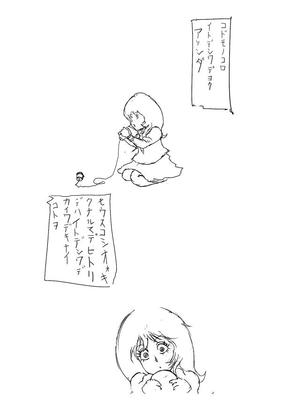 コドモノコロ
イトデンワデヨク
アソンダ
モウスコシオオキ
クナルマデヒトリ
デハイトデンワデ
カイワデキナイ
コトヲ